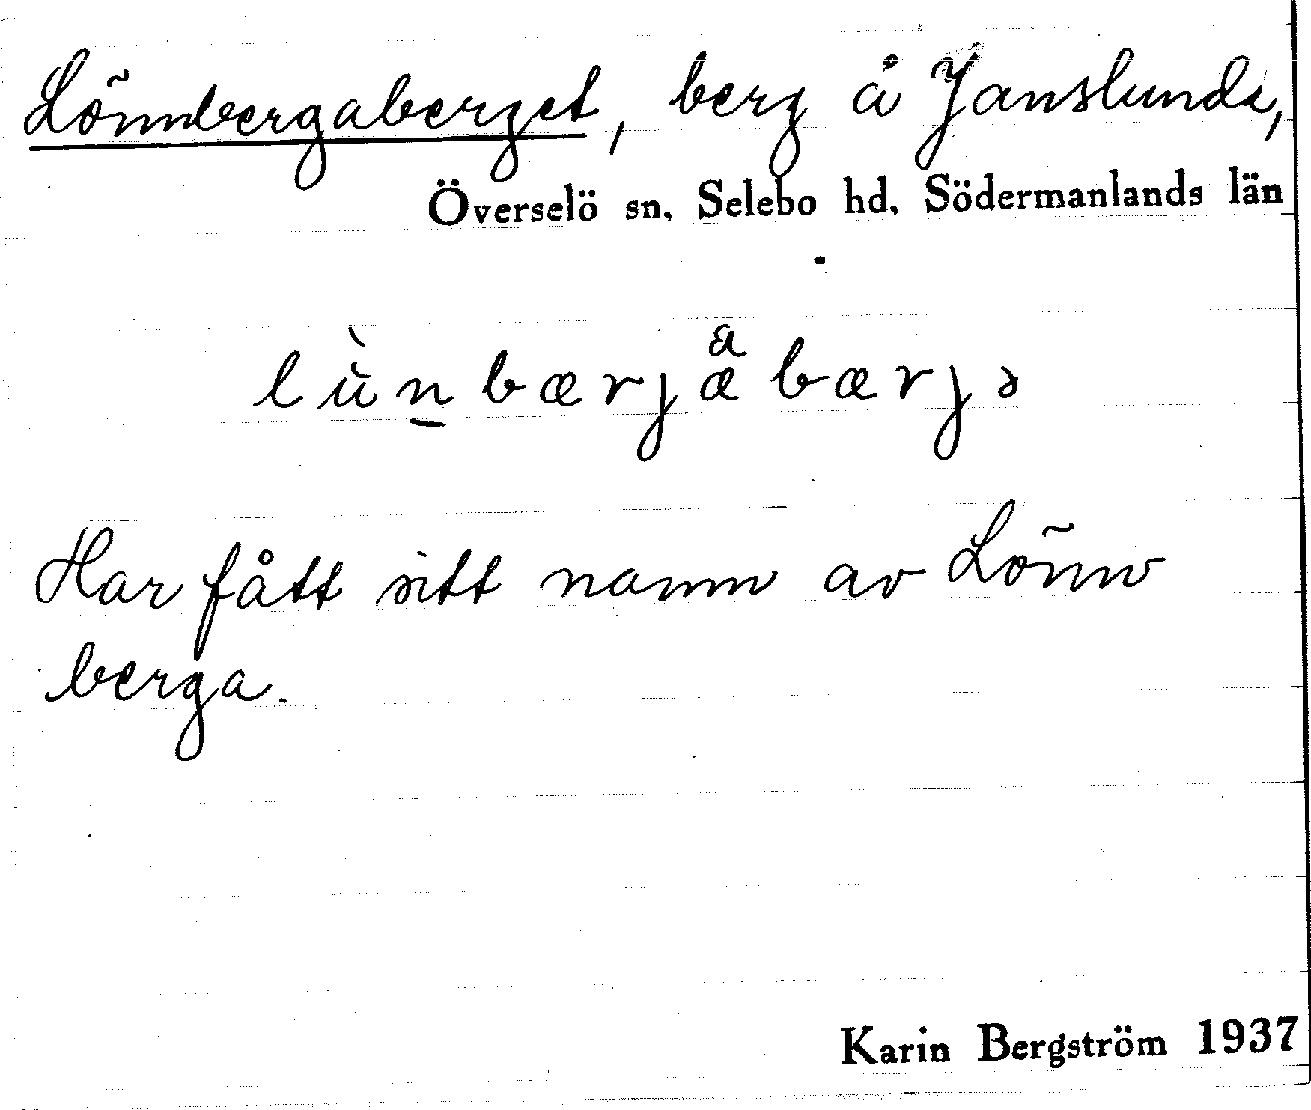 Lönnbergaberget, berg å Janslunda,
Överselö sn, Selebo hd, Södermanlands län
lùn̲bærjæbærjə
a
Har fått sitt namn av Lönn
berga.
Karin Bergström 1937